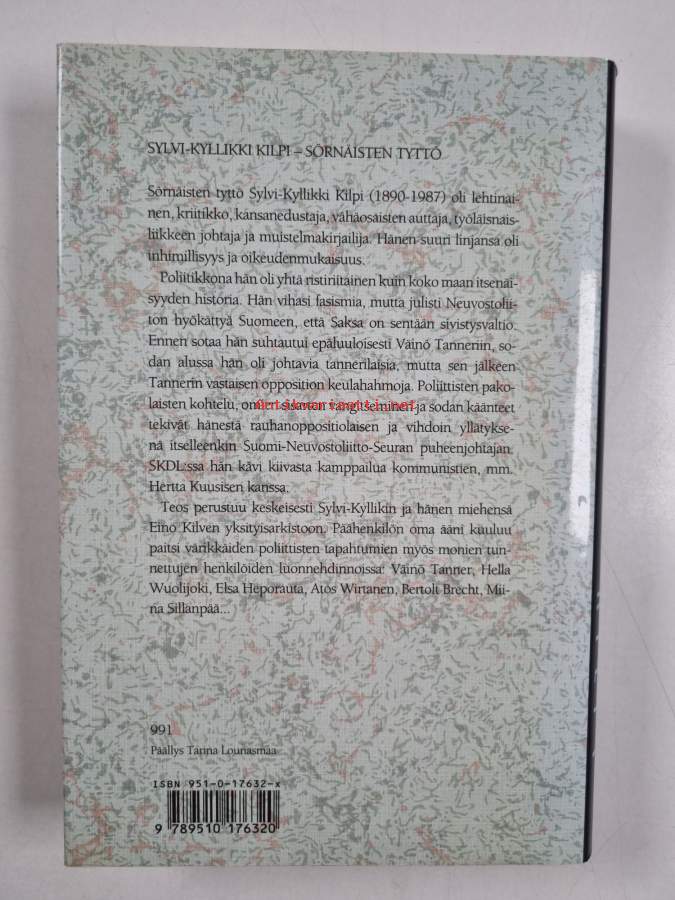 SYLVI-KYLLIKKI KILPI – SÖRNÄISTEN TYTTÖ
Sörnäisten tyttö Sylvi-Kyllikki Kilpi (1890-1987) oli lehtinai-
nen, kriitikko, kansanedustaja, vähäosaisten auttaja, työläisnais-
liikkeen johtaja ja muistelmakirjailija. Hänen suuri linjansa oli
inhimillisyys ja oikeudenmukaisuus.
Poliitikkona hän oli yhtä ristiriitainen kuin koko maan itsenäi-
syyden historia. Hän vihasi fasismia, mutta julisti Neuvostolii-
ton hyökättyä Suomeen, että Saksa on sentään sivistysvaltio.
Ennen sotaa hän suhtautui epäluuloisesti Väinö Tanneriin, so-
dan alussa hän oli johtavia tannerilaisia, mutta sen jälkeen
Tannerin vastaisen opposition keulahahmoja. Poliittisten pako-
laisten kohtelu, oman sisaren vangitseminen ja sodan käänteet
Antikvariaatti.net
tekivät hänestä rauhanoppositiolaisen ja vihdoin yllätykse-
nä itselleenkin Suomi-Neuvostoliitto-Seuran puheenjohtajan.
SKDL:ssa hän kävi kiivasta kamppailua kommunistien, mm.
Hertta Kuusisen kanssa.
Teos perustuu keskeisesti Sylvi-Kyllikin ja hänen miehensä
Eino Kilven yksityisarkistoon. Päähenkilön oma ääni kuuluu
paitsi värikkäiden poliittisten tapahtumien myös monien tun-
nettujen henkilöiden luonnehdinnoissa: Väinö Tanner, Hella
Wuolijoki, Elsa Heporauta, Atos Wirtanen, Bertolt Brecht, Mii-
na Sillanpää...
991
Päällys Tanna Lounasmaa
ISBN 951-0-17632-x
9 789510 176320